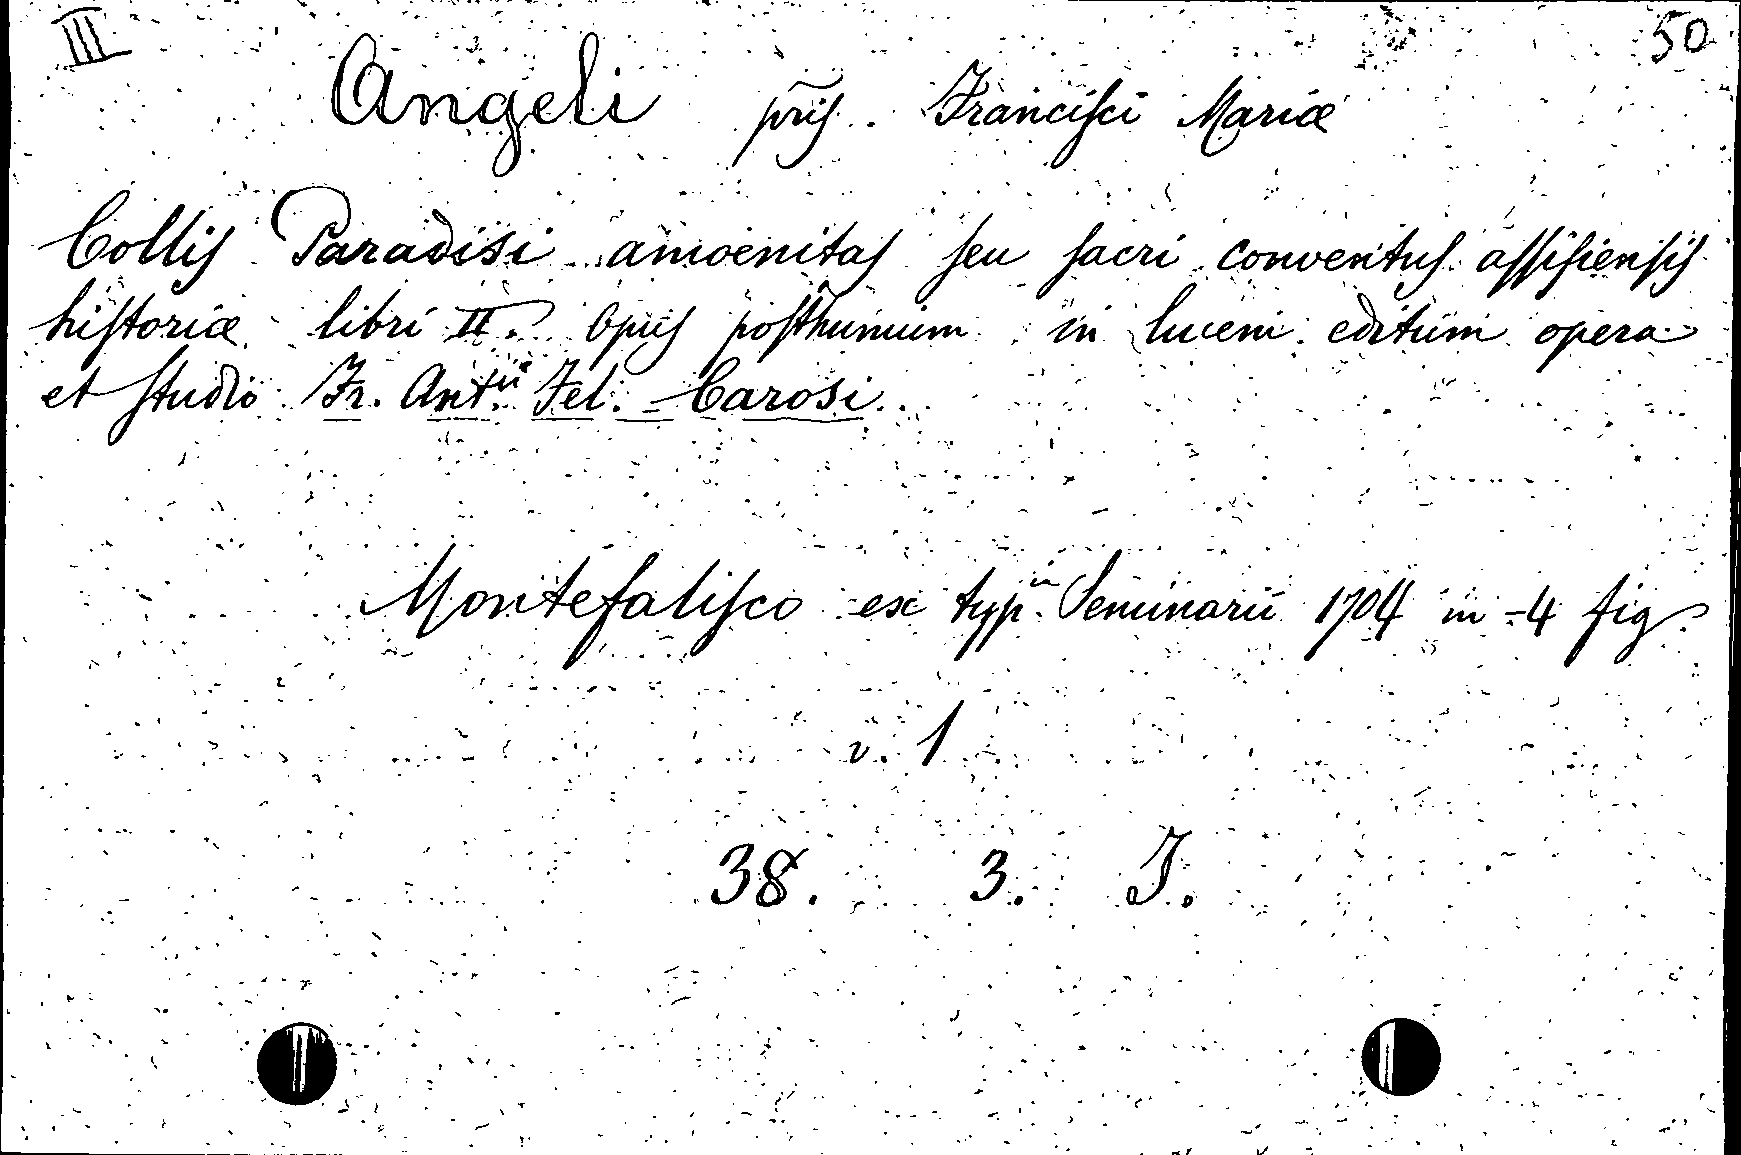 III 50
Angeli p̃ris. Francisci Mariæ
Collis Paradisi amoenitas seu sacri conventus assisiensis
historiæ libri II. Opus posthumum in lucem editum opera
et studio Fr. Ant.ii Fel. Carosi.
Montefalisco ex typ.is Seminarii 1704 in-4 fig.
v. 1
38. 3. J.